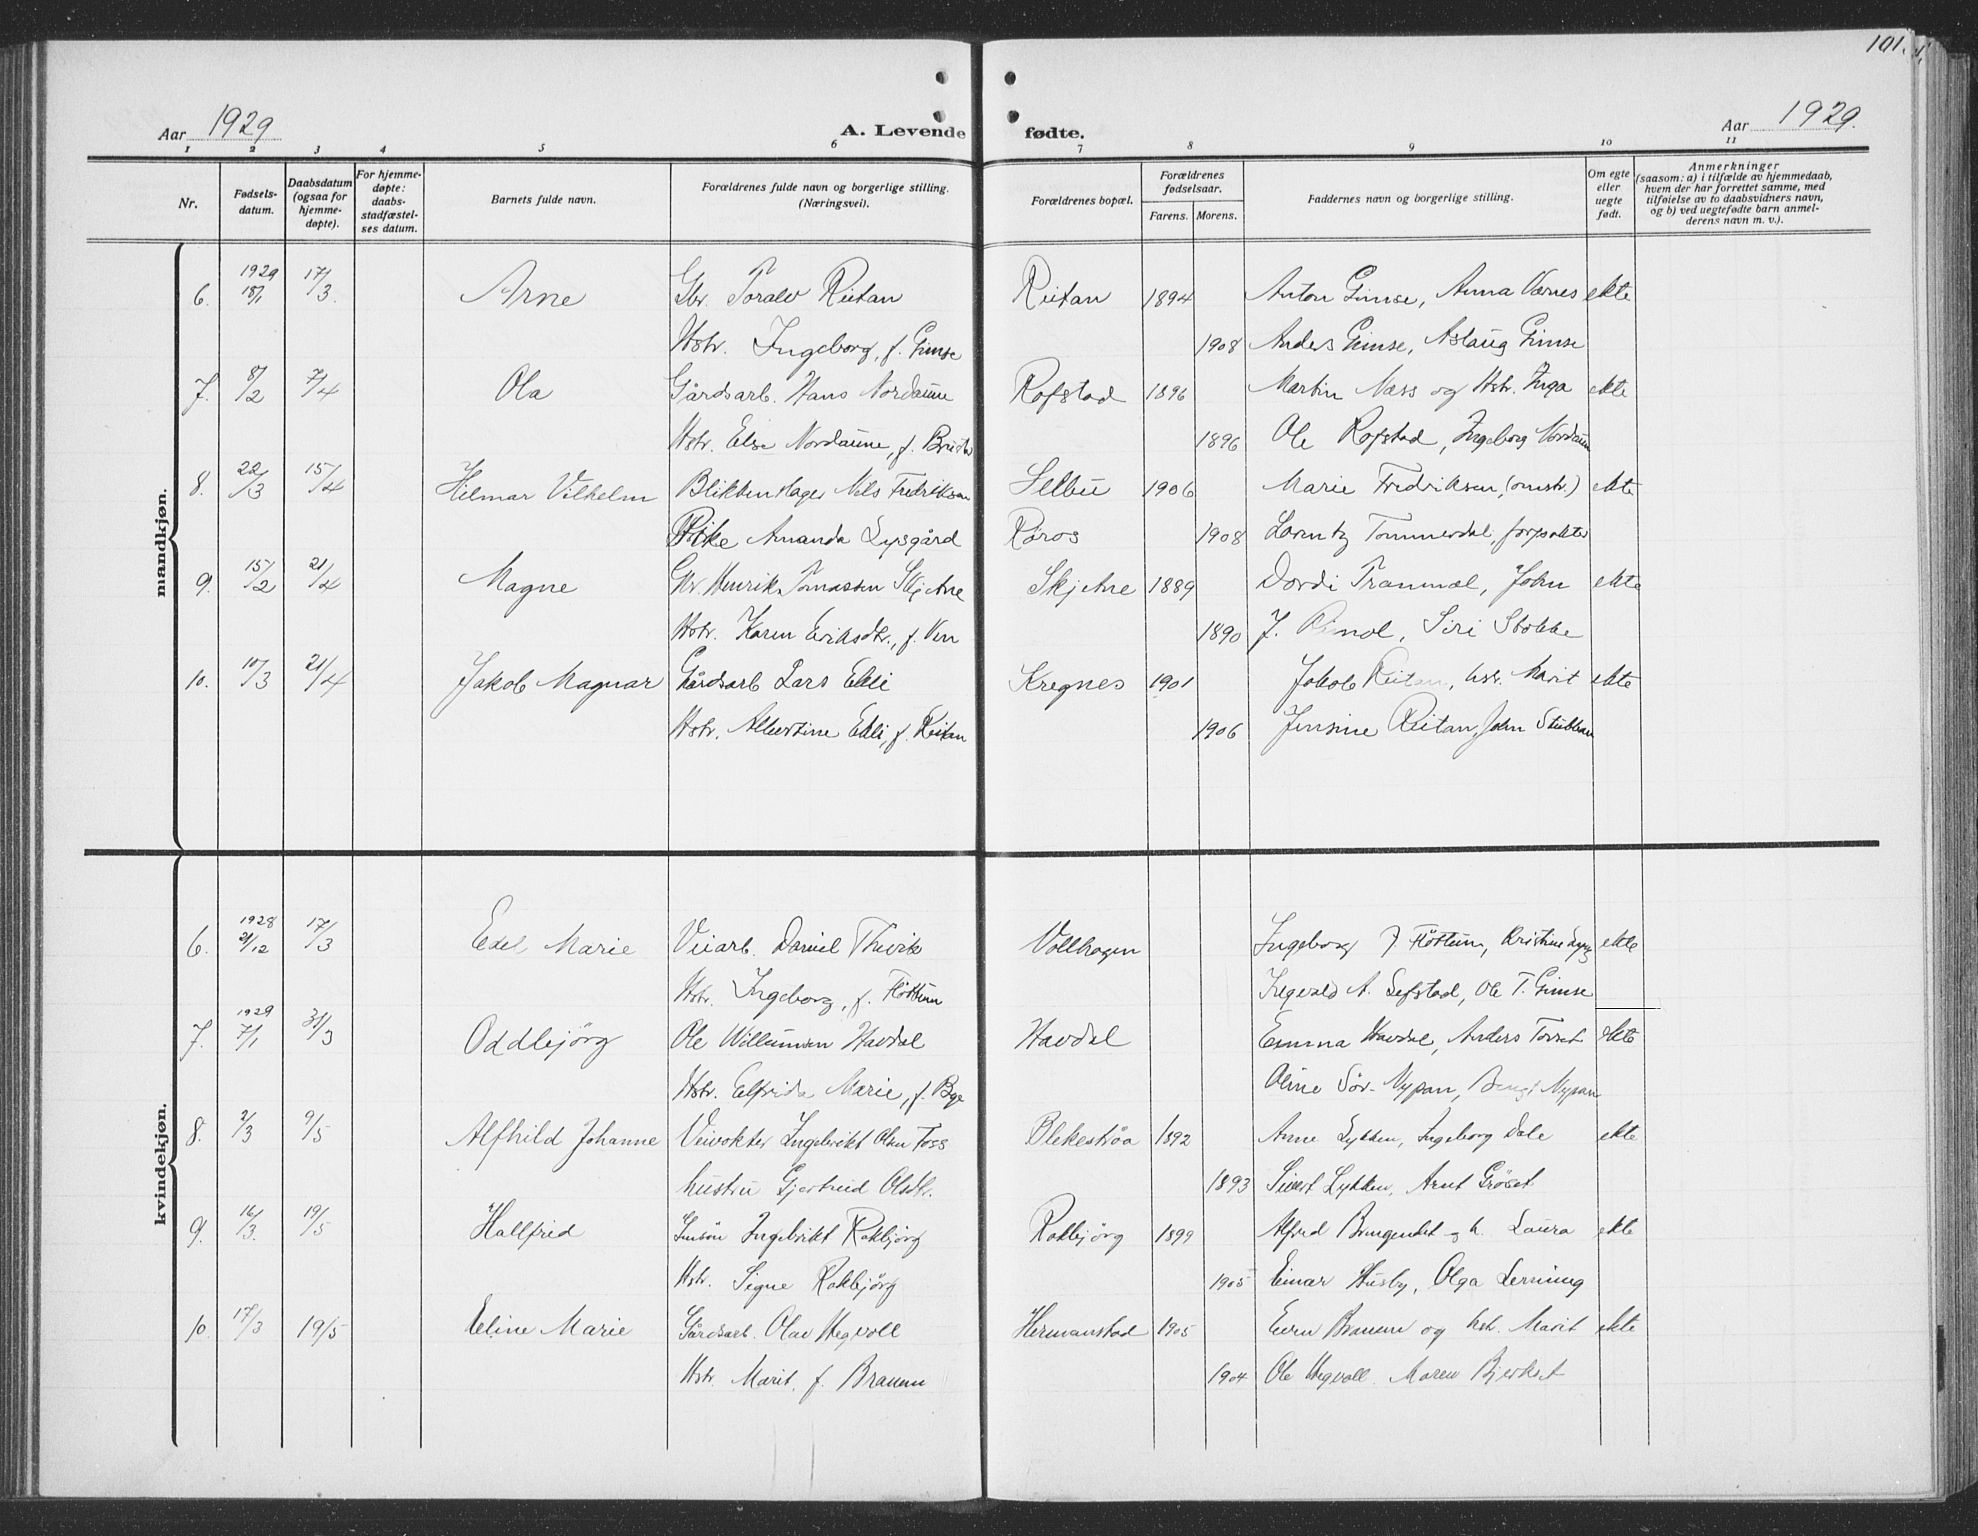 101.
Aar 1929
A. Levende fødte.
Aar 1929.
1 2 3 4 5 6 7 8 9 10 11
Nr.
Fødsels-
datum.
Daabsdatum
(ogsaa for
hjemme-
døpte).
For hjemme-
døpte:
daabs-
stadfæstel-
ses datum.
Barnets fulde navn.
Forældrenes fulde navn og borgerlige stilling.
(Næringsvei).
Forældrenes bopæl.
Forældrenes
fødselsaar.
Farens. Morens.
Faddernes navn og borgerlige stilling.
Om egte
eller
uegte
født.
Anmerkninger
(saasom: a) i tilfælde av hjemmedaab,
hvem der har forrettet samme, med
tilføielse av to daabsvidners navn,
og b) ved uegtefødte barn anmel-
derens navn m. v.).
mandkjøn.
1929
6. 18/1 17/3. Arne Gbr. Toralv Reitan Reitan 1894 Anton Gimse, Anna Værnes ekte
Hstr. Ingeborg, f. Gimse 1908 Anders Gimse, Aslaug Gimse
7. 8/2 7/4 Ola Gårdsarb. Hans Nordaune Rofstad 1896 Martin Næss og Hstr. Inga ekte
Hstr. Else Nordaune, f. 1896 Ole Rofstad, Ingeborg Nordaun
8. 22/3 15/4 Hilmar Vilhelm Blikkenslager Nils Fredriksen Selbu 1906 Marie Fredriksen, ekte
Pike Amanda Lysgård Røros 1908 Lorentz Tommerdal, forpakter
9. 15/2 21/4 Magne Gbr. Henrik Tomassen Skjetne Skjetne 1889 Dordi Tranmæl, John ekte
Hstr. Karen Eriksdtr., f. Ven 1890 J. Rimol, Siri Stokke
10. 10/3 21/4 Jakob Magnar Gårdsarb Lars Ekli Kregnes 1901 Jakob Reitan, hstr. Marit ekte
Hstr. Albertine Ekli, f. Reitan 1906 Jensine Reitan, John Stubban
kvindekjøn.
1928
6. 21/12 17/3 Edel Marie Veiarb. Daniel Thevik Vollhagen Ingeborg J Fløttum, Kristine ekte
Hstr. Ingeborg, f. Fløttum Ingvald A. Sefstad, Ole T. Gimse
1929
7. 7/1 31/3 Oddbjörg Ole Willumsen Havdal Havdal Emma Havdal, Anders ekte
Hstr. Elfrida Marie, f. Bye Oline Sør-Nypan, Bengt Nypan
8. 2/3 9/5 Alfhild Johanne Veivokter Ingebrikt Olsen Foss Blekestrøa 1892 Anne Lykken, Ingeborg Dale ekte
hustru Gjertrud Olsdtr. 1893 Sivert Lykken, Arnt Grøset
9. 16/3. 19/5 Hallfrid Ingebrikt Rokbjørg Rokbjørg 1899 Alfred og h. Laura ekte
Hstr. Signe Rokbjørg 1905 Einar Husby, Olga Lerning
10. 17/3 19/5 Eline Marie Gårdsarb. Olav Hegvoll Hermanstad 1905 Even Brauen og hstr. Marit ekte
Hstr Marit, f. Brauen 1904 Ole Hegvoll. Maren Bjerkset